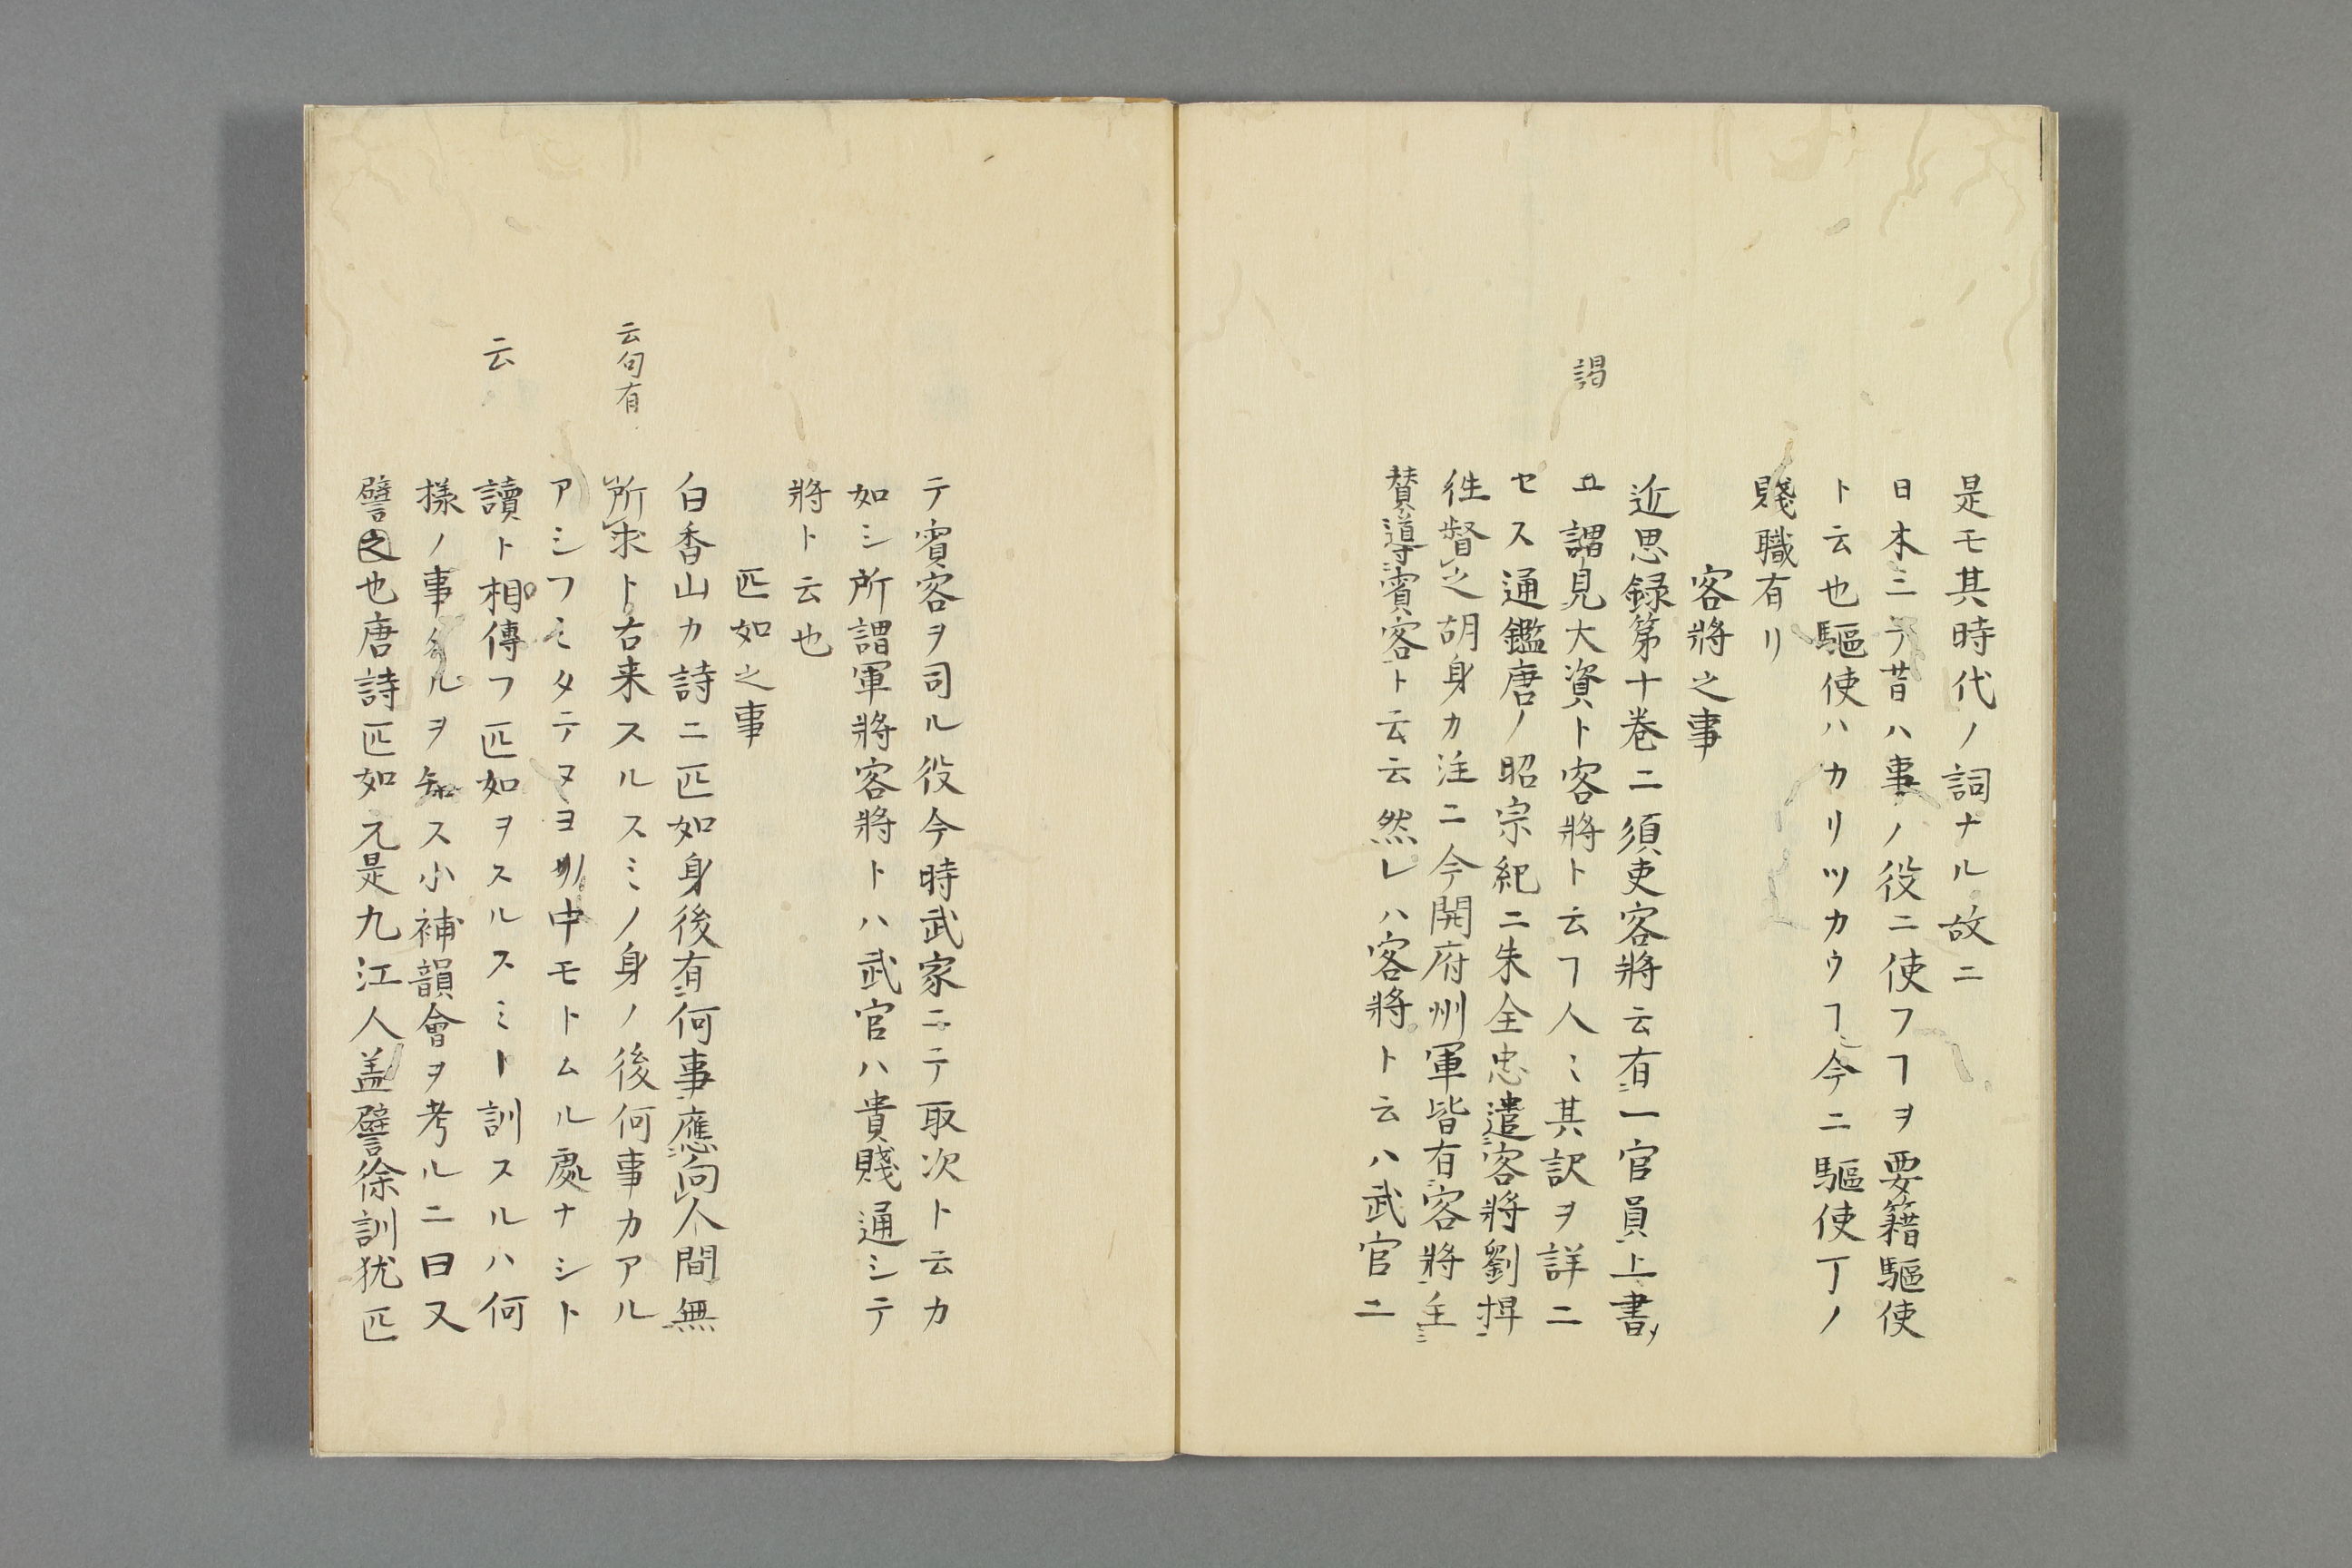 是モ其時代ノ詞ナル故ニ
日本ニテ昔ハ事ノ役ニ使フヿヲ要籍驅使
ト云也驅使ハカリツカウヿ今ニ驅使丁ノ
賤職有リ
客將之事
近思録第十巻ニ須吏客將云有一官員上書
謁
謂見大資ト客將ト云ヿ人ミ其訳ヲ詳ニ
セス通鑑唐ノ昭宗紀ニ朱全忠遣客將劉捍
徃督之胡身カ注ニ今開府州軍皆有客將主
賛導賓客ト云云然レハ客將ト云ハ武官ニ
テ賓客ヲ司ル役今時武家ニテ取次ト云カ
如シ所謂軍將客將トハ武官ハ貴賤通シテ
將ト云也
匹如之事
白香山カ詩ニ匹如身後有何事應向人間無
云句有
所求ト古来スルスミノ身ノ後何事カアル
アシフミタテヌヨ中モトムル處ナシト
云
讀ト相傳フ匹如ヲスルスミト訓スルハ何
樣ノ事タルヲ知ス小補韻會ヲ考ルニ曰又
譬之也唐詩匹如元是九江人盖譬徐訓犹匹